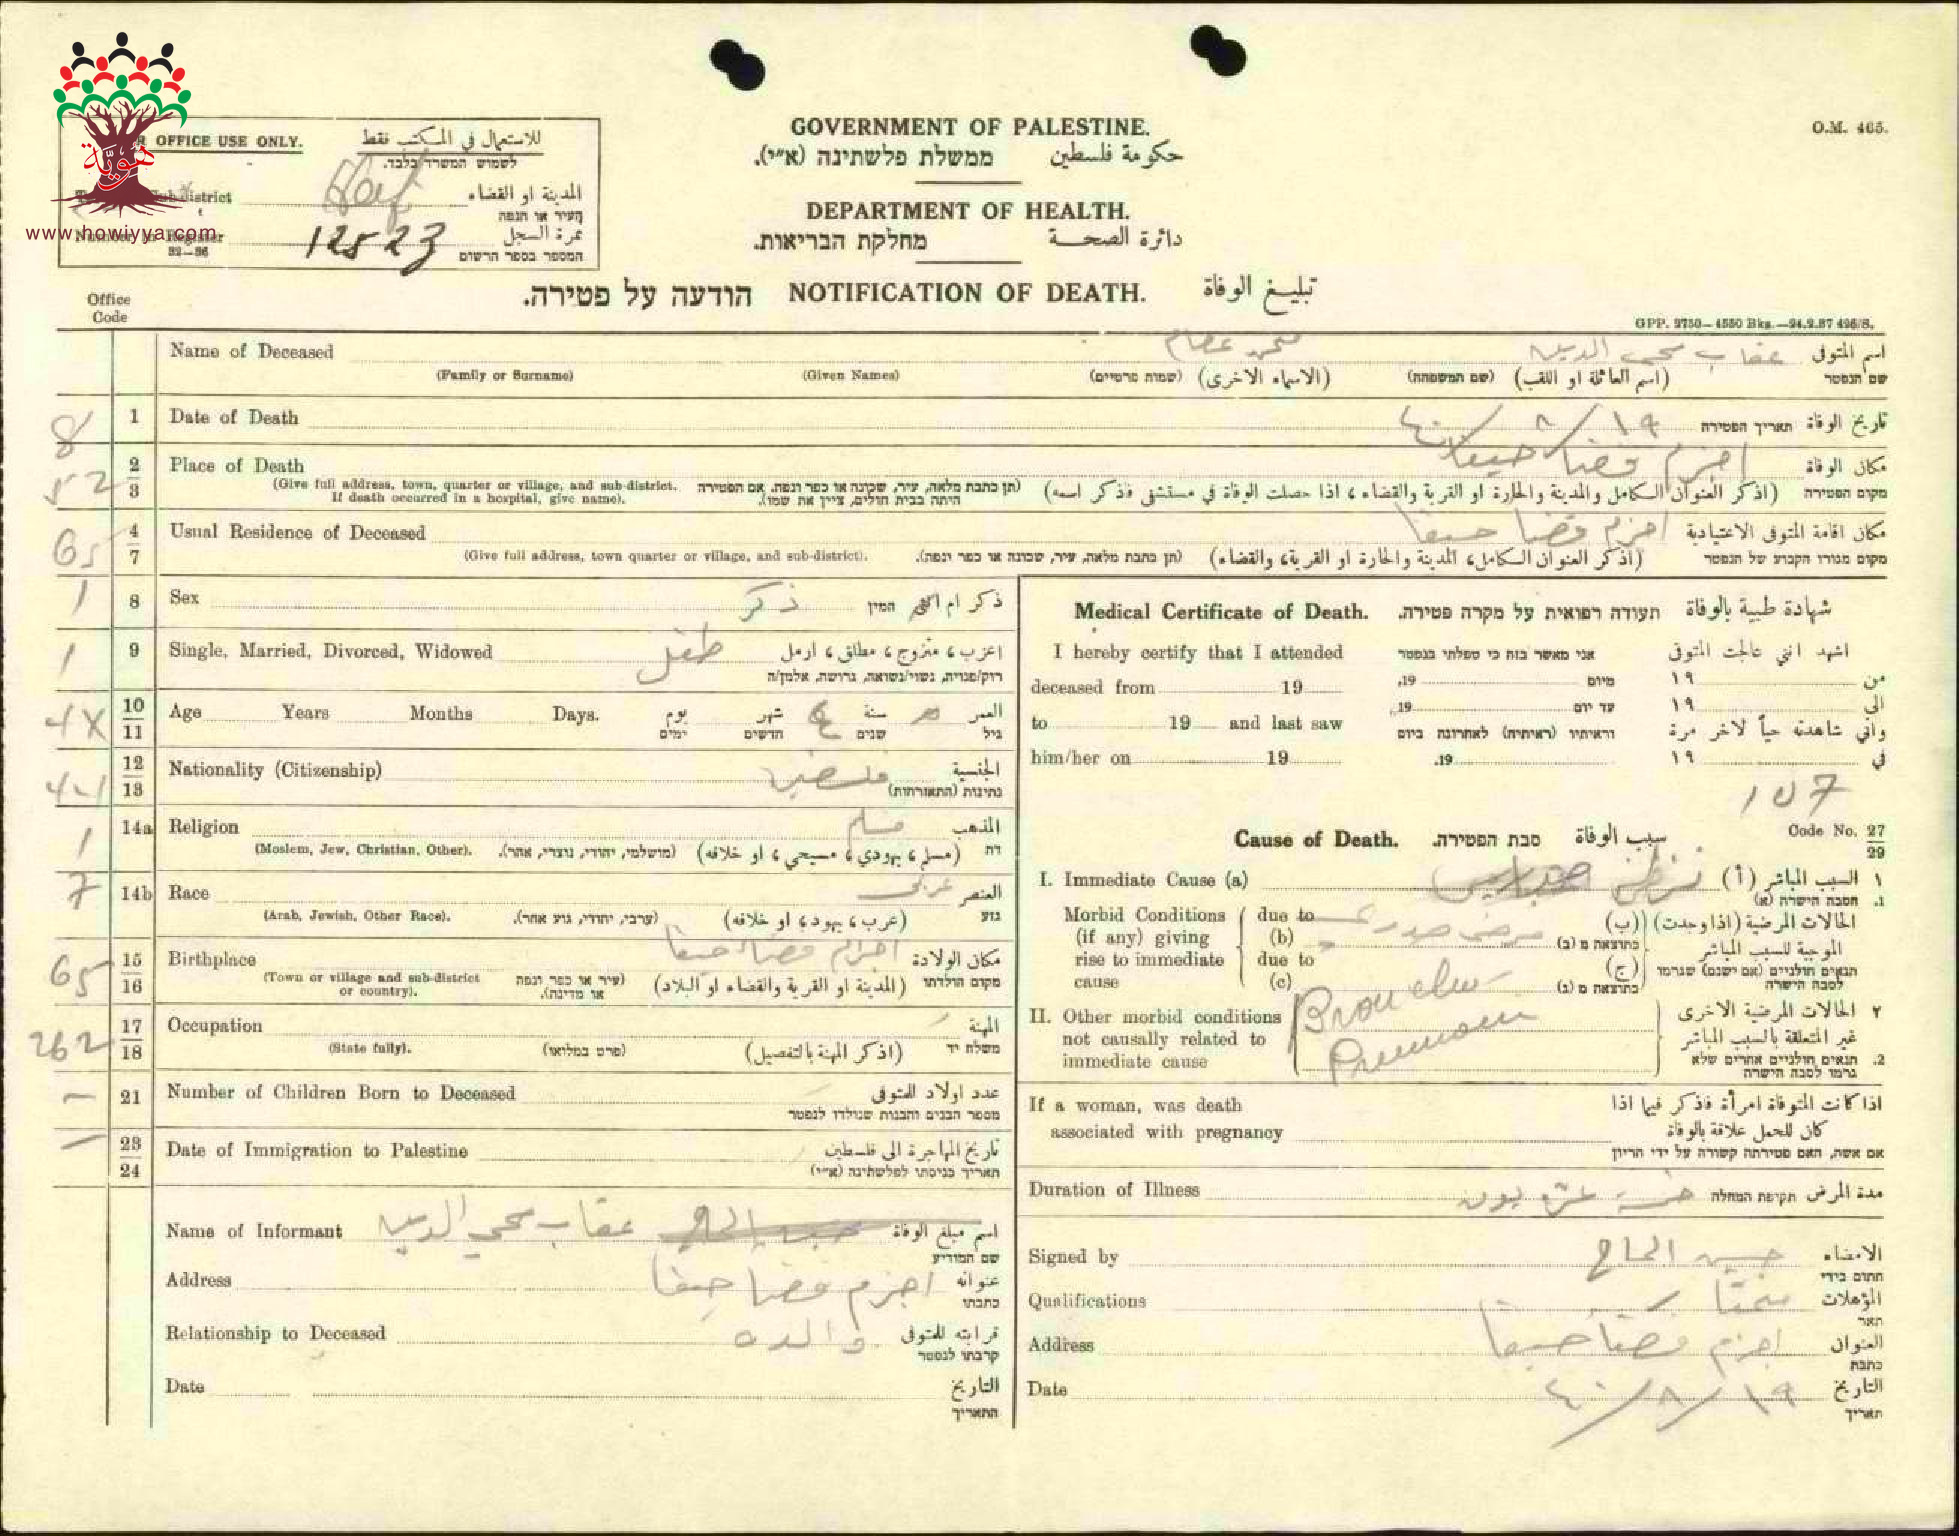 GOVERNMENT OF PALESTINE.
حكومة فلسطين ממשלת פלשתינה (א״י).
O.M. 465.
DEPARTMENT OF HEALTH.
دائرة الصحة מחלקת הבריאות.
OFFICE USE ONLY. للاستعمال في المكتب فقط
לשמוש המשרד בלבד.
Sub-district المدينة او القضاء
העיר או הנפה
هوية
www.howiyya.com
Number in Register 12523 نمرة السجل
32—36 המספר בספר הרשום
הודעה על פטירה. NOTIFICATION OF DEATH. تبليغ الوفاة
Office Code
GPP. 2750—4550 Bks.—24.2.37 496/S.
Name of Deceased محمد عصام عقاب محي الدين اسم المتوفى
(Family or Surname) (Given Names) (الاسماء الاخرى) (שמות פרטיים) (اسم العائلة او اللقب) (שם המשפחה) שם הנפטר
8 1 Date of Death ١٩/٨/٤٠ תאריך הפטירה تاريخ الوفاة
52 2 3 Place of Death اجزم قضا حيفا مكان الوفاة
(Give full address, town, quarter or village, and sub-district. If death occurred in a hospital, give name). (תן כתבת מלאה, עיר, שכונה או כפר ונפה. אם הפטירה היתה בבית חולים, ציין את שמו). (اذكر العنوان الكامل والمدينة والحارة او القرية والقضاء، اذا حصلت الوفاة في مستشفى فاذكر اسمه) מקום הפטירה
65 4 7 Usual Residence of Deceased اجزم قضا حيفا مكان اقامة المتوفى الاعتيادية
(Give full address, town quarter or village, and sub-district). (תן כתבת מלאה, עיר, שכונה או כפר ונפה). (اذكر العنوان الكامل، المدينة والحارة او القرية، والقضاء) מקום מגורו הקבוע של הנפטר
1 8 Sex ذكر המין ذكر ام انثى
1 9 Single, Married, Divorced, Widowed طفل اعزب، متزوج، مطلق، ارمل
רוק/פנויה, נשוי/נשואה, גרושה, אלמן/ה
4X 10 11 Age Years Months Days. يوم ימים شهر חדשים سنة שנים العمر גיל
12 13 Nationality (Citizenship) الجنسية
נתינות (האזרחות)
1 14a Religion مسلم المذهب
(Moslem, Jew, Christian, Other). (מושלמי, יהודי, נוצרי, אחר). (مسلم، يهودي، مسيحي، او خلافه) דת
7 14b Race عربي العنصر
(Arab, Jewish, Other Race). (ערבי, יהודי, גזע אחר). (عرب، يهود، او خلافه) גזע
65 15 16 Birthplace اجزم قضاء حيفا مكان الولادة
(Town or village and sub-district or country). (עיר או כפר ונפה או מדינה). (المدينة او القرية والقضاء او البلاد) מקום הולדתו
262 17 18 Occupation المهنة
(State fully). (פרט במלואו) (اذكر المهنة بالتفصيل) משלח יד
— 21 Number of Children Born to Deceased عدد اولاد المتوفى
מספר הבנים והבנות שנולדו לנפטר
— 23 24 Date of Immigration to Palestine تاريخ المهاجرة الى فلسطين
תאריך כניסתו לפלשתינה (א״י)
Name of Informant عقاب محي الدين اسم مبلغ الوفاة
שם המודיע
Address اجزم قضا حيفا عنوانه
כתבתו
Relationship to Deceased والده قرابته للمتوفى
קרבתו לנפטר
Date التاريخ
התאריך
Medical Certificate of Death. תעודה רפואית על מקרה פטירה. شهادة طبية بالوفاة
I hereby certify that I attended אני מאשר בזה כי טפלתי בנפטר اشهد انني عالجت المتوفى
deceased from 19 מיום 19, من ١٩
to 19 and last saw עד יום 19, الى ١٩
וראיתיו (ראיתיה) לאחרונה ביום واني شاهدته حياً لاخر مرة
him/her on 19 19. في ١٩
107
Cause of Death. סבת הפטירה. سبب الوفاة Code No. 27 29
I. Immediate Cause (a) ١ السبب المباشر (أ)
1. הסבה הישרה (א)
Morbid Conditions (if any) giving rise to immediate cause due to (b) due to (c) مرض صدري الحالات المرضية (اذا وجدت) (ب) الموجبة للسبب المباشر (ج)
כתוצאה מ (ב) תנאים חולניים (אם ישנם) שגרמו לסבה הישרה כתוצאה מ (ג)
II. Other morbid conditions not causally related to immediate cause Broncho Pneumon ٢ الحالات المرضية الاخرى غير المتعلقة بالسبب المباشر
2. תנאים חולניים אחרים שלא גרמו לסבה הישרה
If a woman, was death associated with pregnancy اذا كانت المتوفاة امرأة فاذكر فيما اذا كان للحمل علاقة بالوفاة
אם אשה, האם פטירתה קשורה על ידי הריון
Duration of Illness خمسة عشر يوم תקופת המחלה مدة المرض
Signed by حسين الحاج الامضاء
חתום בידי
Qualifications مختار المؤهلات
תאר
Address اجزم قضا حيفا العنوان
כתבת
Date ١٩/٨/٤٠ التاريخ
תאריך